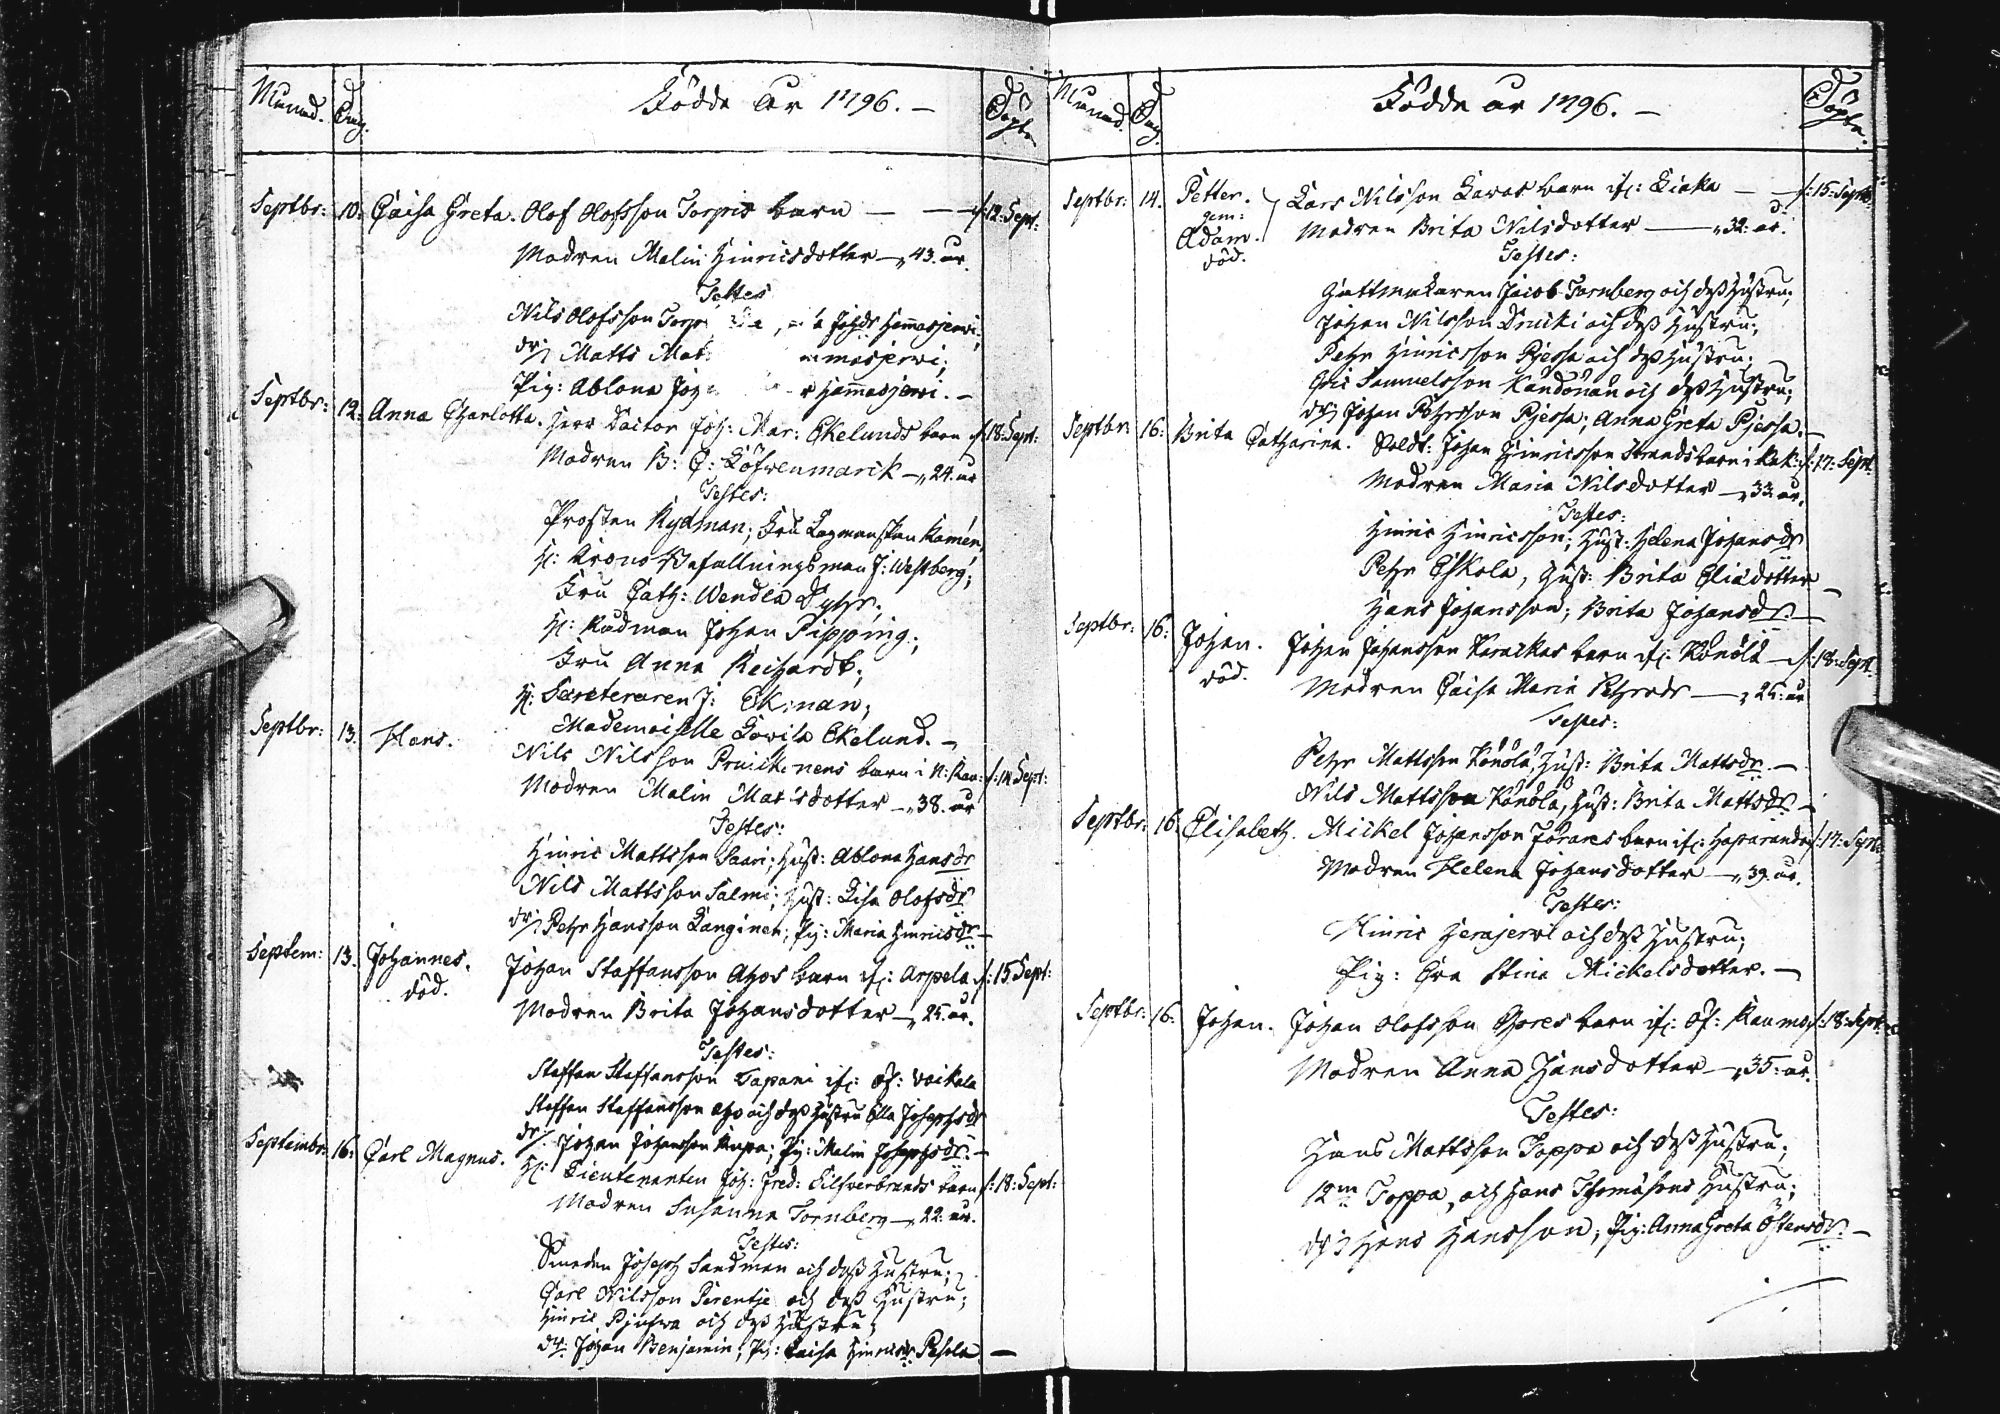 Månad.
Dag.
Födde år 1796. —
Döpte.
Septbr: 10. Caisa Greta. Olof Olofsson Torpis barn — — d: 12: Sept:
Modren Malin Hinricsdotter — 43. år.
Testes
Nils Olofsson Johsdr Hannasjerwi;
dr: Matts
Pig: Ablona Hannasjerwi. —
Septbr: 12: Anna Charlotta. Herr Doctor Joh: Mar: Ekelunds barn d: 18: Sept:
Modren B: C: Löfwenmarck — 24. år
Testes:
Prosten Rydman; Fru Lagmanskan Kamén,
H: Krono Befallningsman J: Westberg;
Fru Cath: Wendla Dyhr;
H: Rådman Johan Pipping;
Fru Anna Reichardt;
H: Secreteraren J: Ekman;
Mademoiselle Lovisa Ekelund. —
Septbr: 13. Hans. Nils Nilsson barn i N: d: 14 Sept:
Modren Malin Matsdotter — 38. år
Testes:
Hinric Mattsson Saari; Hust: Ablona Hansdr
Nils Mattsson Salmi; Hust: Lisa Olofsdr
dr: Pehr Hansson Langinen; Pig: Maria Hinricsdr —
Septem: 13. Johannes. Johan Staffansson Ahos barn if: Arpela d: 15 Sept:
död.
Modren Brita Johansdotter — 25. år.
Testes:
Staffan Staffansson Tapani if: Öf: Voikala
Staffan Staffansson Aho och dess Hustru Ella Josephsdr
dr: Johan Johansson Pig: Malin Josephsdr. —
Septembr: 16: Carl Magnus. H: Lieutenanten Joh: Fred: Silfverbrands barn d: 18: Sept:
Modren Susanna Tornberg — 22: år.
Testes:
Smeden Joseph Sandman och dess Hustru;
Carl Nilsson Perentje och dess Hustru;
Hinric och dess Hustru;
dr: Johan Benjamin; Pig: Caisa Hinricsdr —
Månad.
Dag.
Födde år 1796. —
Döpte.
Septbr: 14. Petter. Lars Nilsson Lavas barn if: Liaka — d: 15: Septbr
gem:
Adam. Modren Brita Nilsdotter — 32: år.
död.
Testes:
Hattmakaren Jacob Tornberg och dess Hustru;
Johan Nilsson Drucki och dess Hustru;
Pehr Hinricsson Pjessa och dess Hustru;
Eric Samuelsson och dess Hustru;
dr: Johan Pehrsson Pjessa; Anna Greta Pjessa. —
Septbr: 16: Brita Catharina. Soldt: Johan Hinricsson Strands barn i d: 17: Sept.
Modren Maria Nilsdotter — 33. år.
Testes:
Hinric Hinricsson; Hust: Helena Johansdr
Pehr Eskola, Hust: Brita Eliædotter —
Hans Johansson; Brita Johansdr. —
Septbr: 16: Johan. Johan Johansson barn if: Könölä — d: 18: Sept.
död.
Modren Caisa Maria Pehrsdr — 25: år
Testes:
Pehr Mattsson Könölä, Hust: Brita Mattsdr. —
Nils Mattsson Könölä, Hust: Brita Mattsdr. —
Septbr: 16: Elisabeth. Mickel Johansson barn if: Haparanda d: 17: Sept:
Modren Helena Johansdotter — 39. år.
Testes:
Hinric Herajerwi och dess Hustru;
Pig: Eva Stina Mickelsdotter. —
Septbr: 16: Johan. Johan Olofsson barn if: Öf: Raumo d: 18: Sept:
Modren Anna Hansdotter — 35: år.
Testes:
Hans Mattsson Toppa och dess Hustru;
Toppa, och Hans Thomæsons Hustru;
dr: Hans Hansson; Pig: Anna Greta Östensdr. —